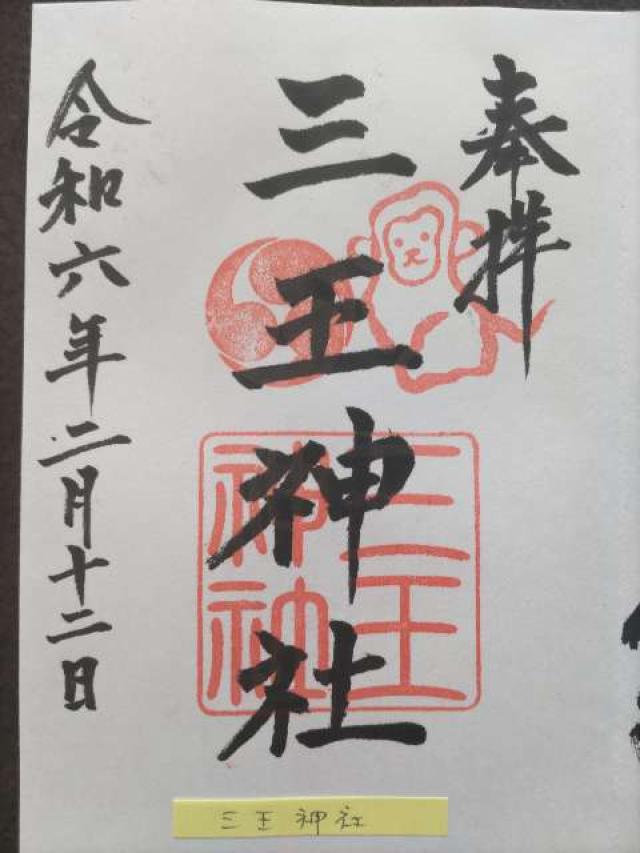 奉拝
三王神社
三王神社
令和六年二月十二日
三王神社